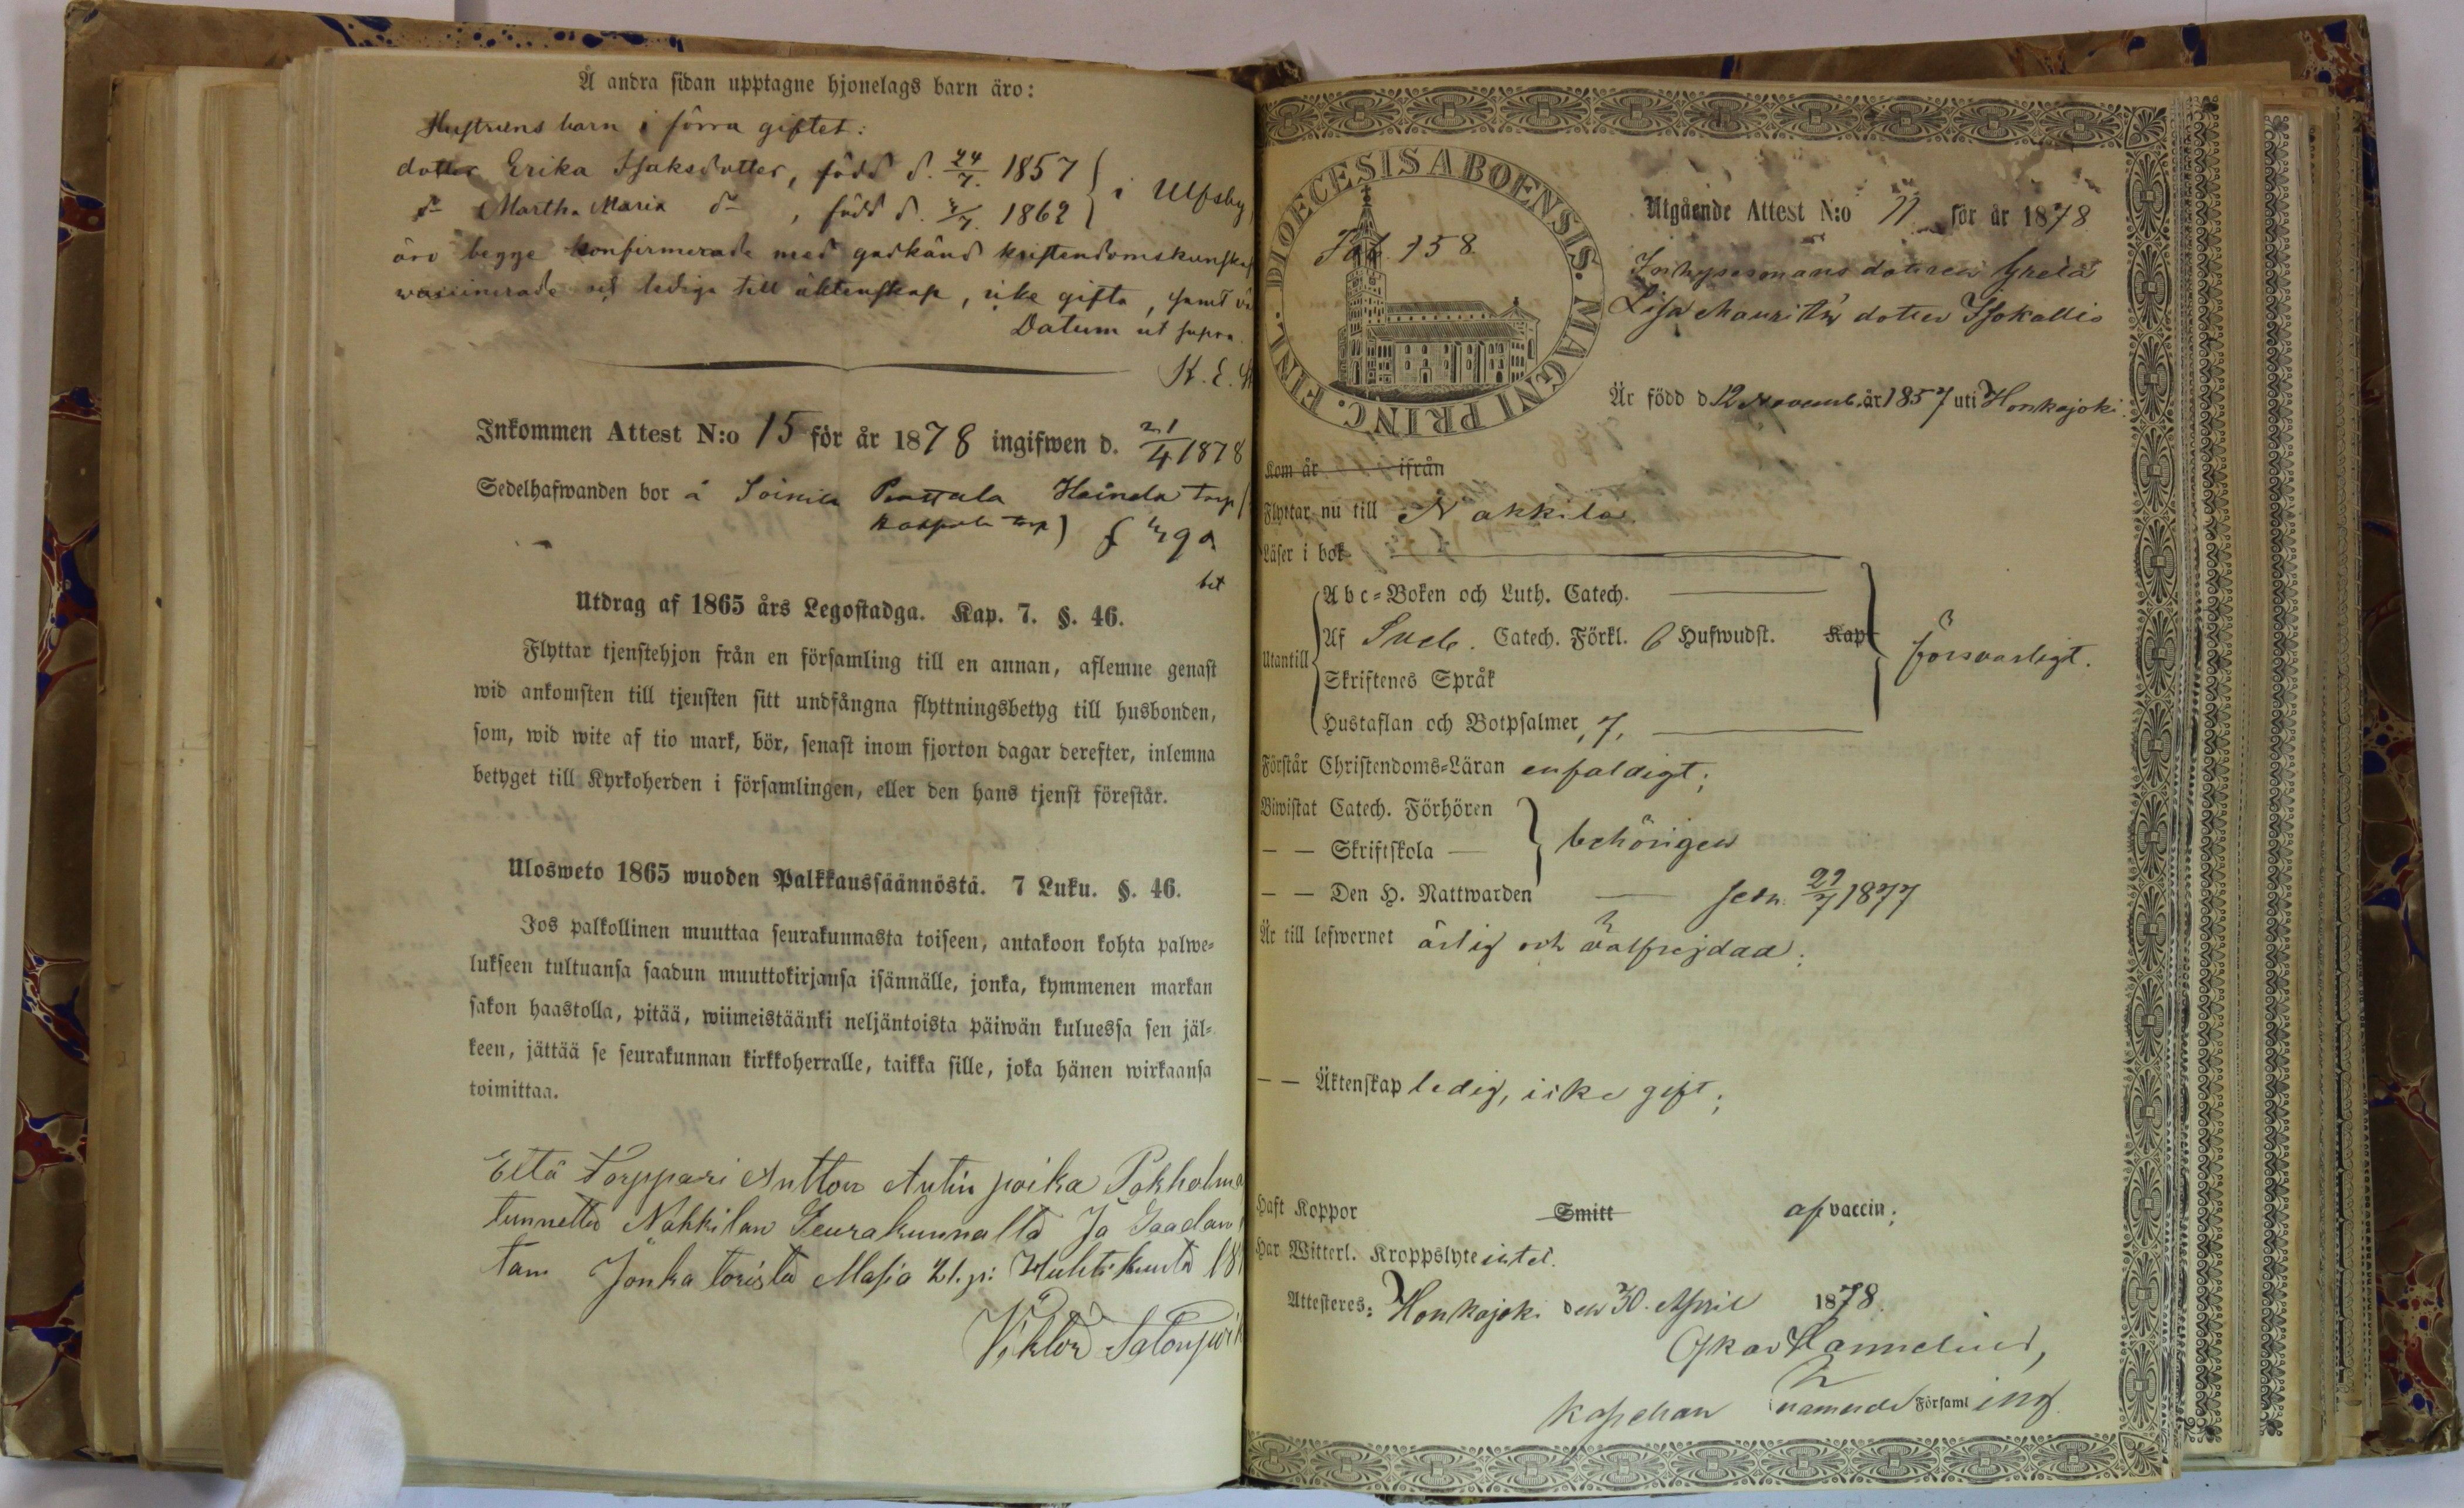 Å andra sidan upptagne hjonelags barn äro:
Hustruns barn i förra giftet:
dotter Erika Isaksdotter, född d. 24/7. 1857
do Martha Maria do, född d. 1862
i Ulfsby,
äro begge konfirmerade med godkänd kristendomskunskap
waccinerade och lediga till äktenskap, icke gifta, samt
Datum ut supra.
K. E.
Inkommen Attest N:o 15 för år 1878 ingifwen d. 21/4 1878
Sedelhafwanden bor å Soinila Heinola torp
torp)
Utdrag af 1865 års Legostadga. Kap. 7. §. 46.
Flyttar tjenstehjon från en församling till en annan, aflemne genast
wid ankomsten till tjensten sitt undfångna flyttningsbetyg till husbonden,
som, wid wite af tio mark, bör, senast inom fjorton dagar derefter, inlemna
betyget till Kyrkoherden i församlingen, eller den hans tjenst förestår.
Ulosweto 1865 wuoden Palkkaussäännöstä. 7 Luku. §. 46.
Jos palkollinen muuttaa seurakunnasta toiseen, antakoon kohta palwe-
lukseen tultuansa saadun muuttokirjansa isännälle, jonka, kymmenen markan
sakon haastolla, pitää, wiimeistäänki neljäntoista päiwän kuluessa sen jäl-
keen, jättää se seurakunnan kirkkoherralle, taikka sille, joka hänen wirkaansa
toimittaa.
Että Torppari Antton Antin poika
tunnettu Nakkilan Seurakunnalta Ja Saadan
tam Jonka torista Masia 21. p: Huhtikuuta 18
Viktor
DIOECESIS ABOENSIS. MAGNI PRINC. FINL.
Fol. 158.
Utgående Attest N:o 11 för år 1878
Inhysesmans dottren Greta
Lisa Mauritz dotter Isokallio
Är född d. 12 Novemb. år 1857 uti Honkajoki.
Kom år ifrån
Flyttar nu till Nakkila.
Läser i bok
Utantill
Abc-Boken och Luth. Catech.
Af Sveb. Catech. Förkl. 6 Hufwudst. Kap
Skriftenes Språk
Hustaflan och Botpsalmer, 7,
försvarligt.
Förstår Christendoms-Läran enfaldigt;
Biwistat Catech. Förhören
— — Skriftskola —
behörigen
— — Den H. Nattwarden — sedn. 22/7 1877
Är till lefwernet ärlig och välfrejdad;
— — Äktenskap ledig, icke gift;
Haft Koppor Smitt af vaccin;
Har Witterl. Kroppslyte intet.
Attesteres: Honkajoki den 30. April 1878.
Oskar Hannelius,
kapellan i nämnde Församling